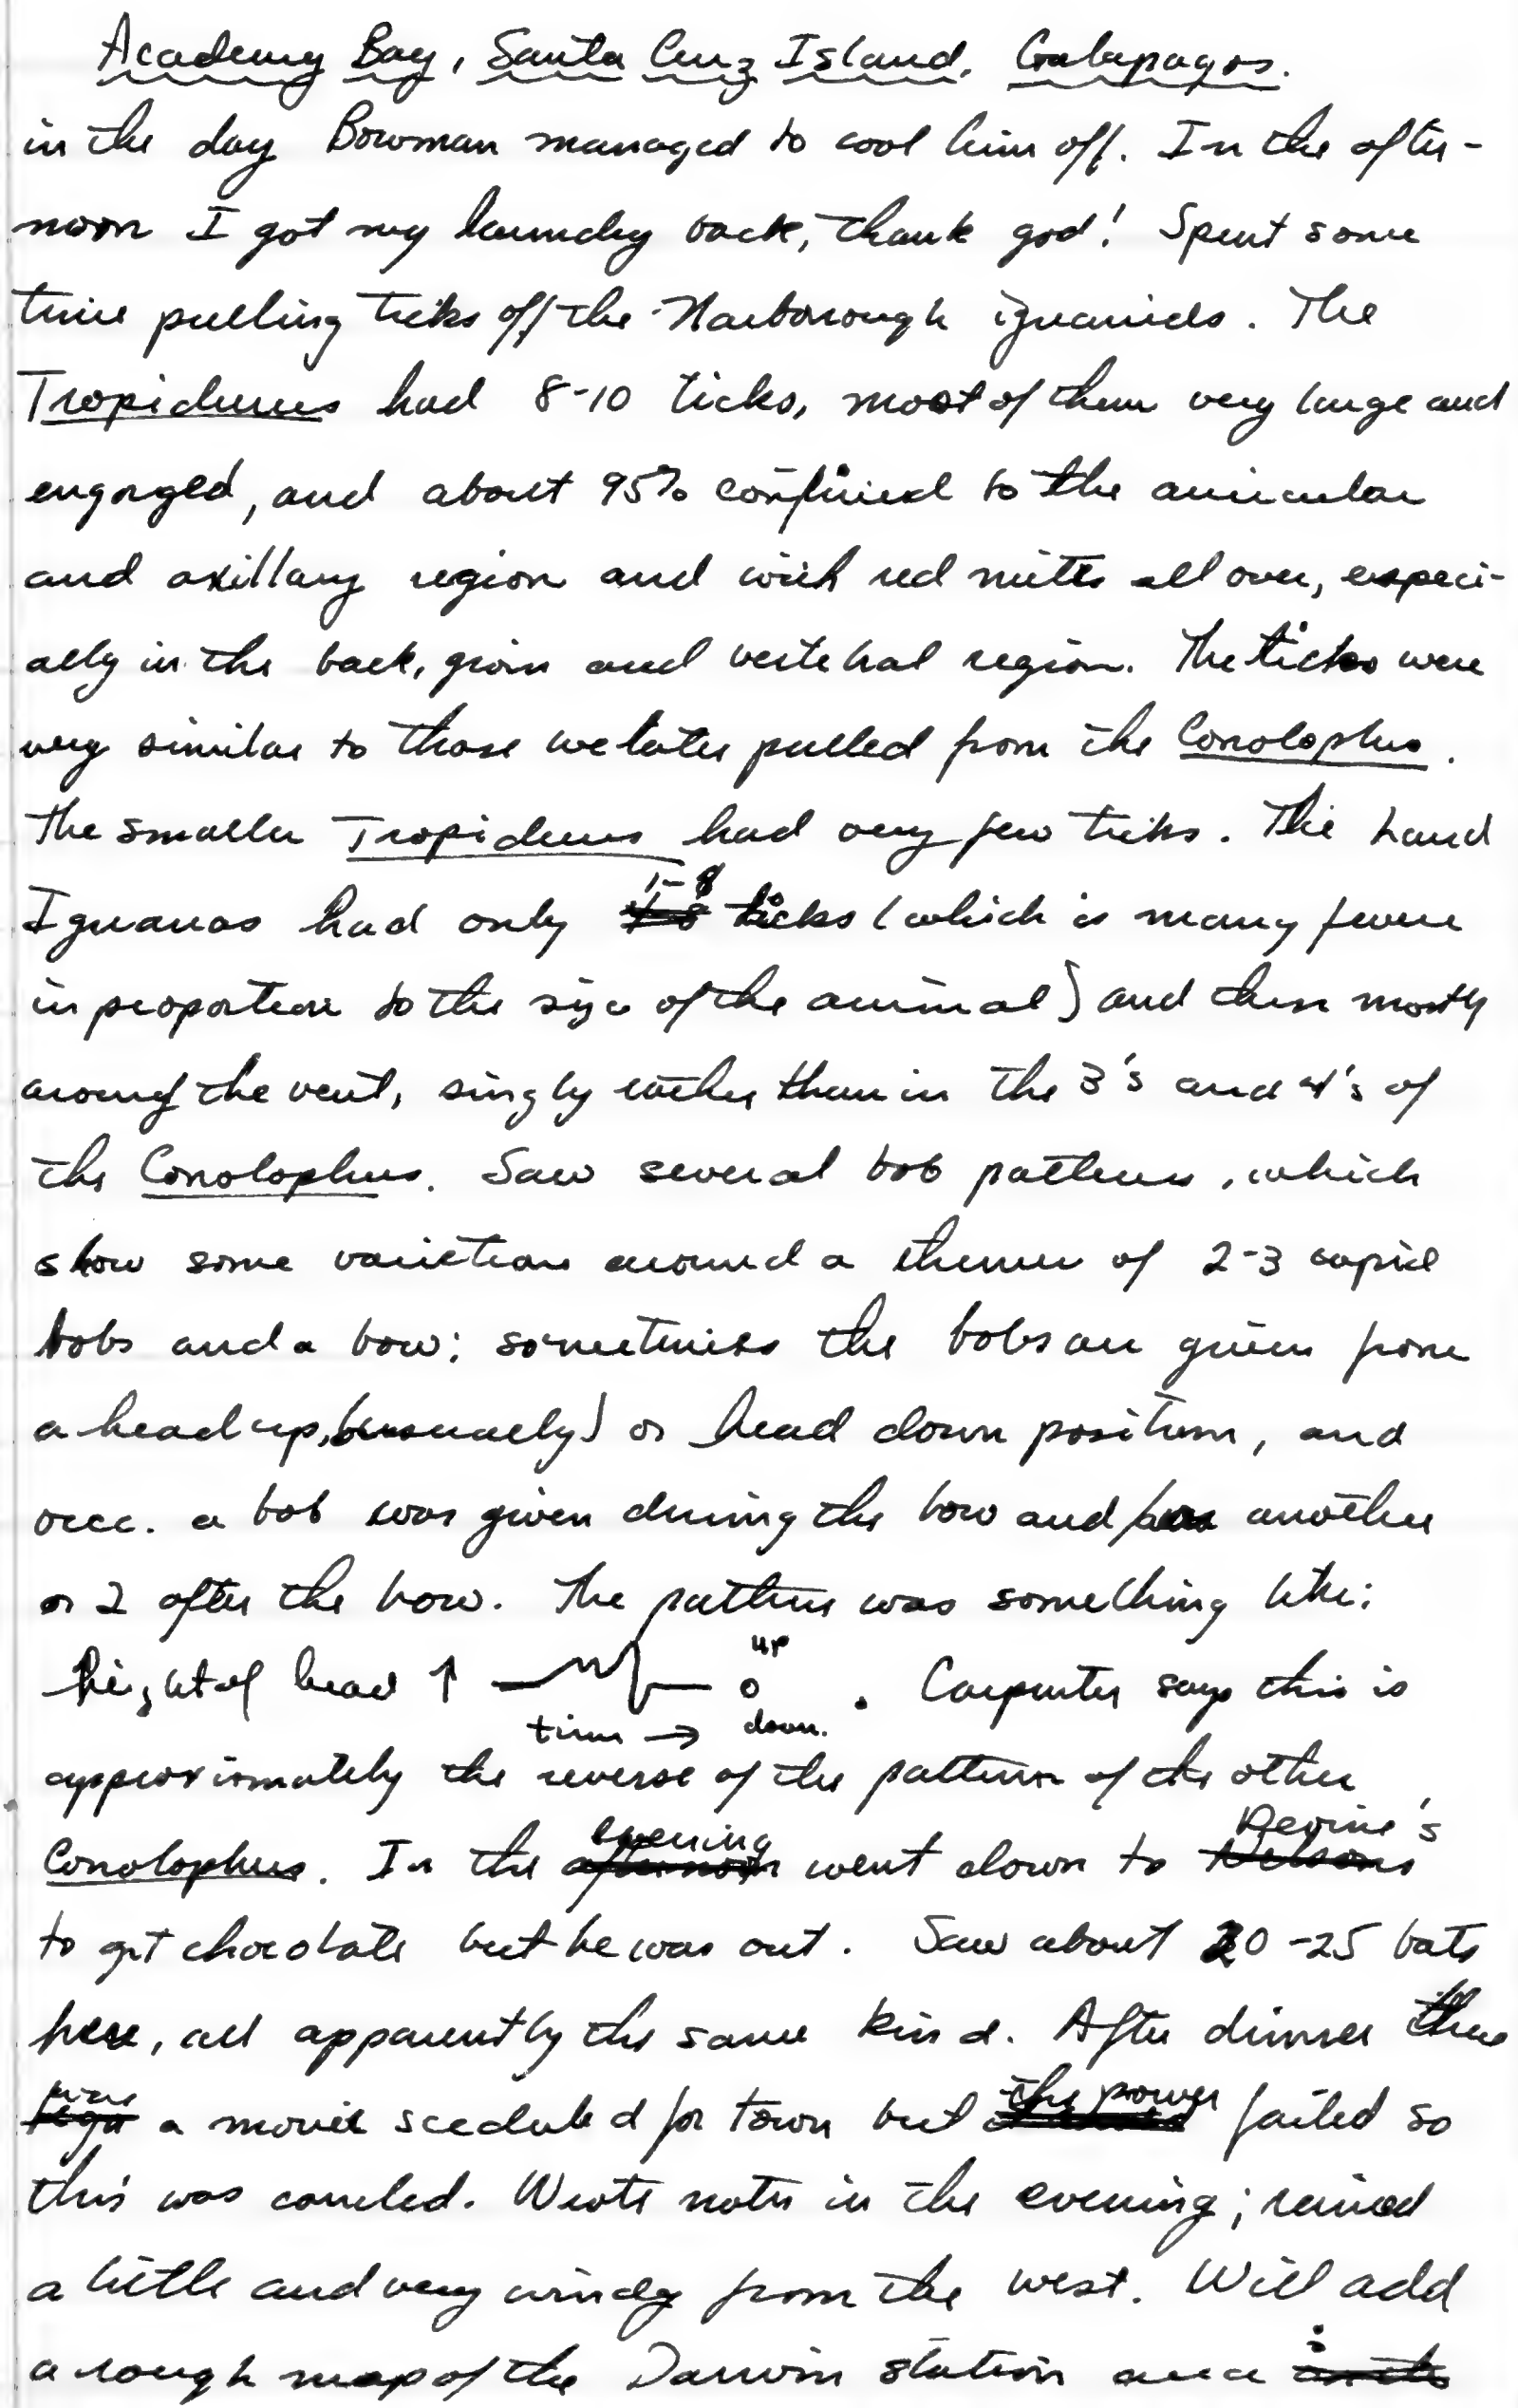 Academy Bay, Santa Cruz Island, Galapagos.
in the day Bowman managed to cool him off. In the after-
noon I got my laundry back, thank god! Spent some
time pulling ticks off the Narborough iguanids. The
Tropidurus had 8-10 ticks, most of them very large and
engorged, and about 95% confined to the auricular
and axillary region and with red mites all over, especi-
ally in the back, groin and vertebral region. The ticks were
very similar to those we later pulled from the Conolophus.
The smaller Tropidurus had very few ticks. The Land
Iguanas had only 1-8 ticks (which is many fewer
in proportion to the size of the animal) and then mostly
around the vent, singly rather than in the 3's and 4's of
the Conolophus. Saw several bob patterns, which
show some variations around a theme of 2-3 rapid
bobs and a bow; sometimes the bobs are given from
a head up, (usually) or head down position, and
occ. a bob was given during the bow and another
or 2 after the bow. The pattern was something like:
height of head ↑ up o . Carpenter says this is
time → down.
approximately the reverse of the pattern of the other
Conolophus. In the evening went down to Devine's
to get chocolate but he was out. Saw about 20-25 bats
here, all apparently the same kind. After dinner there
was a movie sceduled for town but the power failed so
this was canceled. Wrote notes in the evening; rained
a little and very windy from the west. Will add
a rough map of the Darwin station area